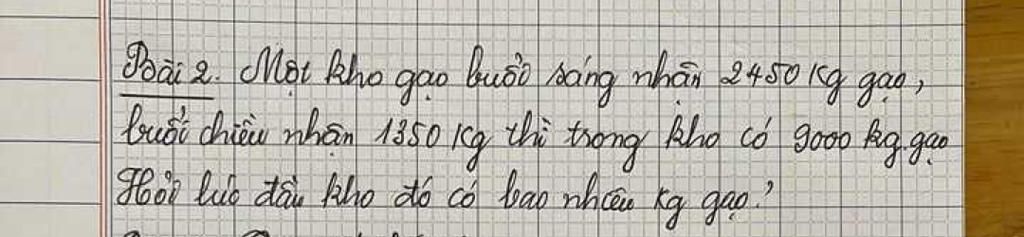 Bài 2. Một kho gạo buổi sáng nhận 2450 kg gạo,
buổi chiều nhận 1350 kg thì trong kho có 9000 kg gạo
Hỏi lúc đầu kho đó có bao nhiêu kg gạo?